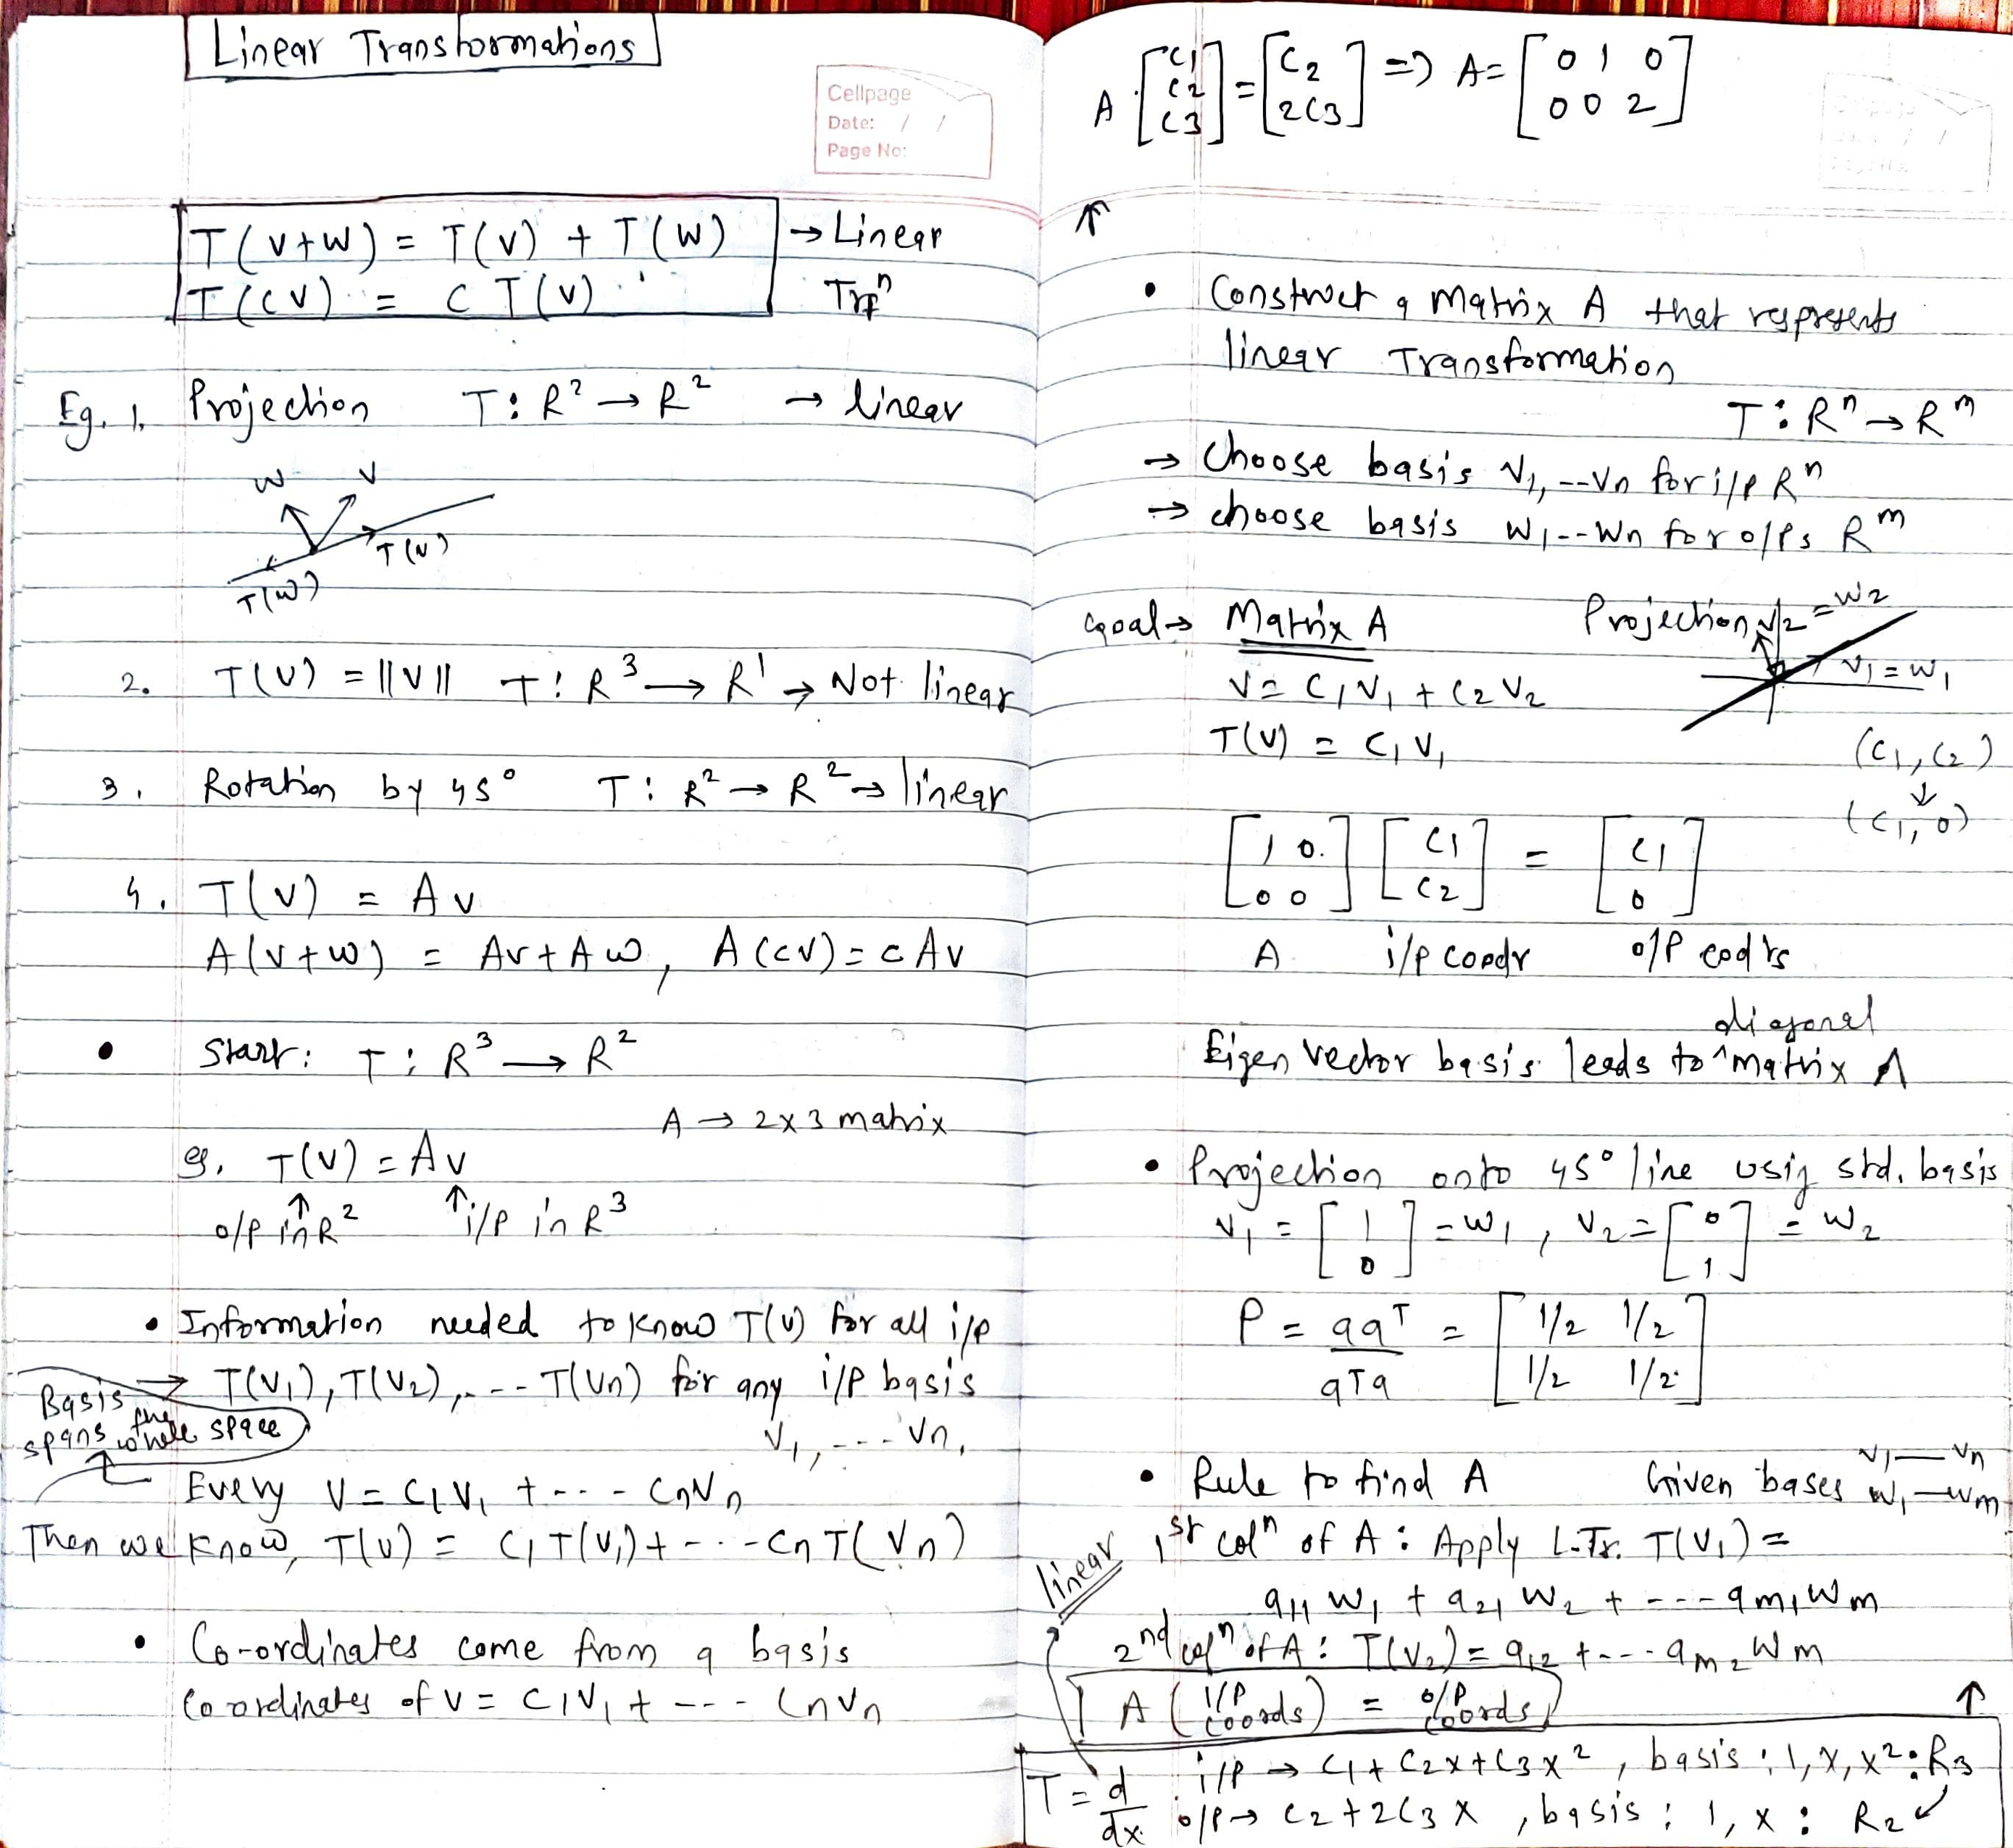 Linear Transformations
Cellpage
Date: / /
Page No:
T(v+w) = T(v) + T(w) → Linear
T(cv) = c T(v) Trfⁿ
Eg. 1. Projection T: R² → R² → linear
w v
T(v)
T(w)
2. T(v) = ||v|| T: R³ → R¹ → Not linear
3. Rotation by 45° T: R² → R² → linear
4. T(v) = Av
A(v+w) = Av + Aw, A(cv) = cAv
• Start: T: R³ → R²
A → 2x3 matrix
eg. T(v) = Av
↑ ↑
o/p in R² i/p in R³
• Information needed to know T(v) for all i/p
→ T(v₁), T(v₂), --- T(vn) for any i/p basis
v₁, --- vn.
Basis
spans the whole space
Every v = c₁v₁ + --- cnvn
Then we know, T(v) = c₁T(v₁) + --- cnT(vn)
• Co-ordinates come from a basis
Coordinates of v = c₁v₁ + --- cnvn
A · [c1 c2 c3] = [c2 2c3] => A = [0 1 0
0 0 2]
↑
• Construct a Matrix A that respresents
linear Transformation
T: Rⁿ → Rᵐ
→ Choose basis v₁, --vn for i/p Rⁿ
→ choose basis w₁ -- wn for o/ps Rᵐ
Goal → Matrix A Projection v2 = w2
v = c₁v₁ + c₂v₂ v₁ = w₁
T(v) = c₁v₁ (c₁, c₂)
↓
(c₁, 0)
[1 0
0 0] [c1
c2] = [c1
0]
A i/p coodr o/p codrs
diagonal
Eigen vector basis leads to ^ matrix Λ
• Projection onto 45° line usig std. basis
v₁ = [1
0] = w₁, v₂ = [0
1] = w₂
P = aaᵀ/aᵀa = [1/2 1/2
1/2 1/2]
• Rule to find A Given bases v₁—vn
w₁—wm
1st colⁿ of A: Apply L.Tr. T(v₁) =
a₁₁w₁ + a₂₁w₂ + --- am₁wm
2nd colⁿ of A: T(v₂) = a₁₂ + --- am₂wm
linear
A (I/P coords) = O/P coords
↑
T = d/dx i/p → c₁ + c₂x + c₃x², basis: 1, x, x² : R3
o/p → c₂ + 2c₃x, basis: 1, x : R2